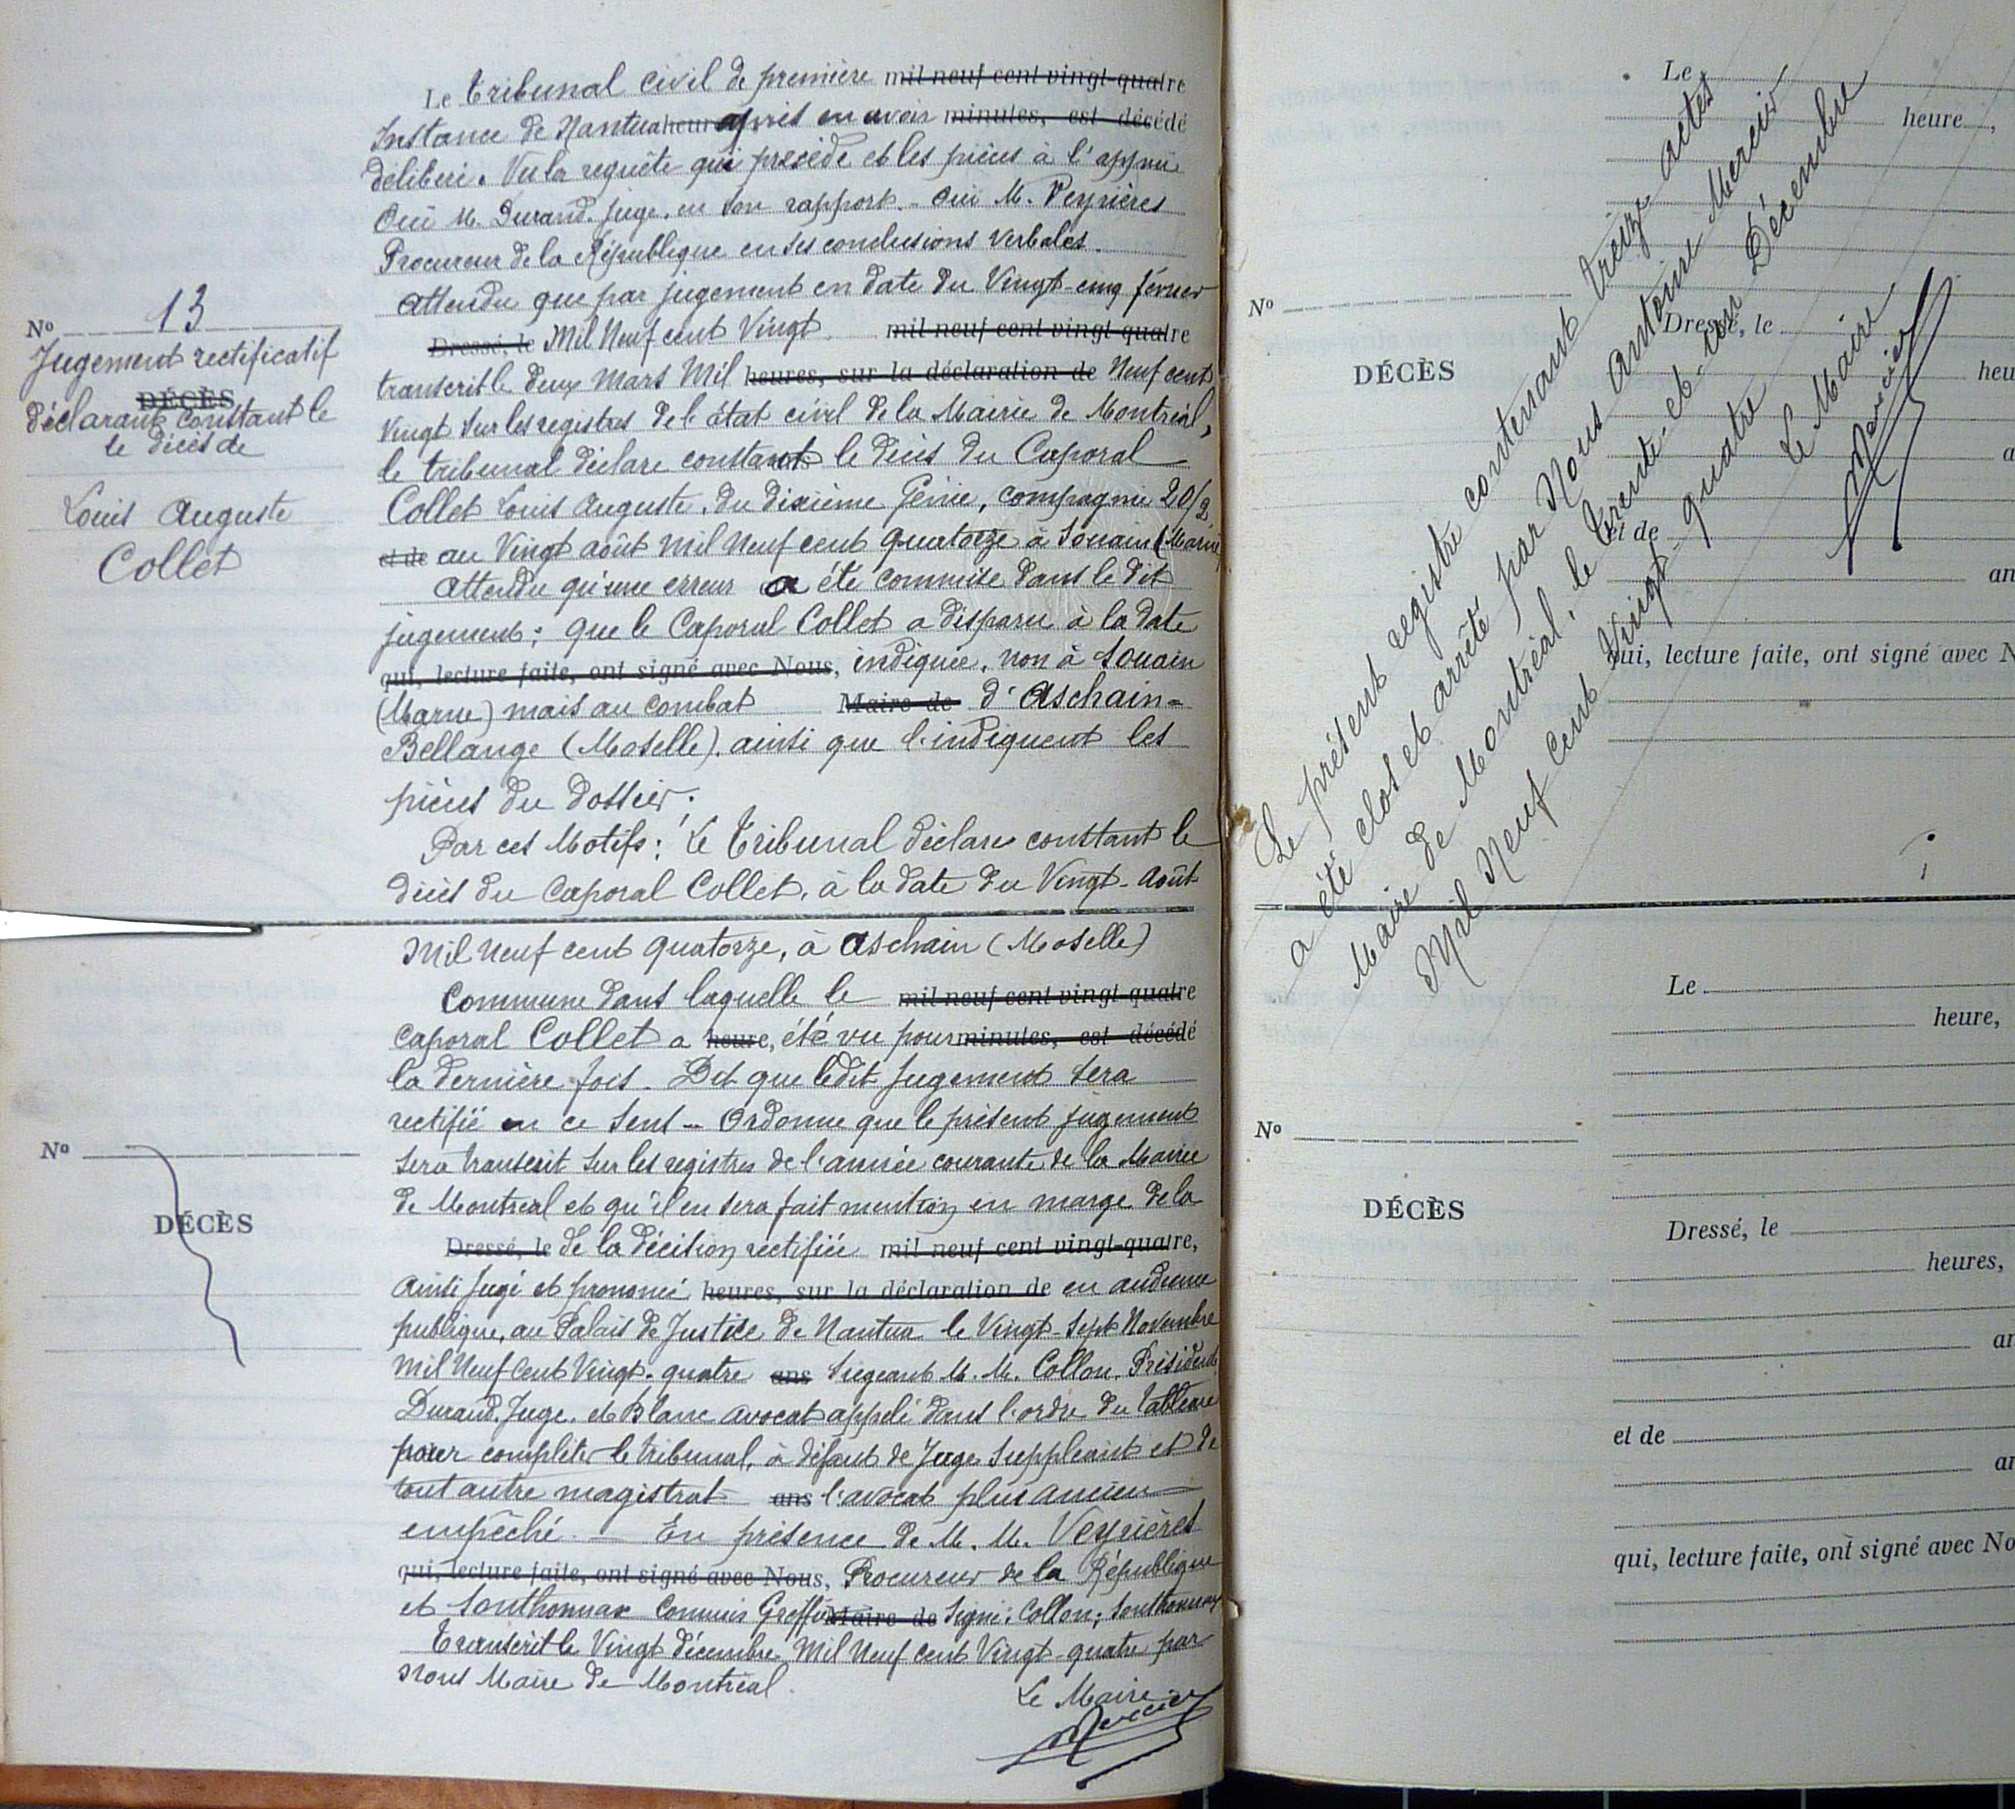 N° 13
Jugement rectificatif
DÉCÈS
déclarant constant le
le décès de
Louis Auguste
Collet
Le Tribunal civil de première mil neuf cent vingt-quatre
Instance de Nantua heur après en avoir minutes, est décédé
délibéré. Vu la requête qui précède et les pièces à l'appui
Ouï M. Durand. Juge. en son rapport. - Ouï M. Veyrières
Procureur de la République en ses conclusions verbales.
Attendu que par jugement en date du Vingt-cinq février
Dressé, le Mil Neuf cent Vingt mil neuf cent vingt-quatre
transcrit le deux Mars Mil heures, sur la déclaration de Neuf cent
Vingt sur les registres de l'état civil de la Mairie de Montréal,
le tribunal déclare constant le décès du Caporal
Collet Louis Auguste. du dixième Génie, compagnie 20/2,
et de au Vingt août Mil Neuf cent quatorze à Souain (Marne)
Attendu qu'une erreur a été commise dans le dit
jugement; que le Caporal Collet a disparu à la date
qui, lecture faite, ont signé avec Nous, indiquée, non à Souain
(Marne) mais au combat Maire de d'Aschain-
Bellange (Moselle). ainsi que l'indiquent les
pièces du dossier;
Par ces Motifs: Le Tribunal déclare constant le
décès du Caporal Collet, à la date du Vingt-Août
Mil Neuf cent quatorze, à Aschain (Moselle)
Commune dans laquelle le mil neuf cent vingt-quatre
caporal Collet a heure, été vu pour minutes, est décédé
la dernière fois. Dit que ledit jugement sera
rectifié en ce sens - Ordonne que le présent jugement
sera transcrit sur les registres de l'année courante de la Mairie
de Montréal et qu'il en sera fait mention en marge de la
Dressé, le de la décision rectifiée mil neuf cent vingt-quatre,
Ainsi jugé et prononcé heures, sur la déclaration de en audience
publique, au Palais de Justice de Nantua le Vingt-Sept Novembre
Mil Neuf Cent Vingt-quatre ans Siégeant M. M. Collon, Président
Durand. Juge. et Blanc avocat appelé dans l'ordre du tableau
pour compléter le tribunal, à défaut de Juges Suppléants et de
tout autre magistrat ans l'avocat plus ancien
empêché. - En présence de M. M. Veyrières
qui, lecture faite, ont signé avec Nous, Procureur de la République
et Southonnax Commis Greffier Maire de Signé: Collon; Southonnax
Transcrit le Vingt décembre Mil Neuf cent Vingt-quatre par
nous Maire de Montréal.
Le Maire
Mercier
N°
DÉCÈS
Le présent registre contenant treize actes
a été clos et arrêté par Nous Antoine Mercier
Maire de Montréal, le Trente-et-un Décembre
Mil Neuf Cent Vingt-quatre
Le Maire
Mercier
N°
DÉCÈS
Le
heure,
Dressé, le
heu
a
et de
an
qui, lecture faite, ont signé avec N
N°
DÉCÈS
Le
heure,
Dressé, le
heures,
an
et de
an
qui, lecture faite, ont signé avec No